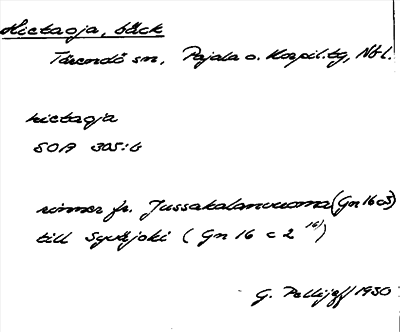 Hietaoja, bäck
Tärendö sn, Pajala o. Korpil. tg, Nbl.
hietaoja
SOA 305:6
rinner fr. Jussakalanvuoma (Gn 16 c3)
till Syväjoki (Gn 16 c 2 16)
G. Pellijeff 1930